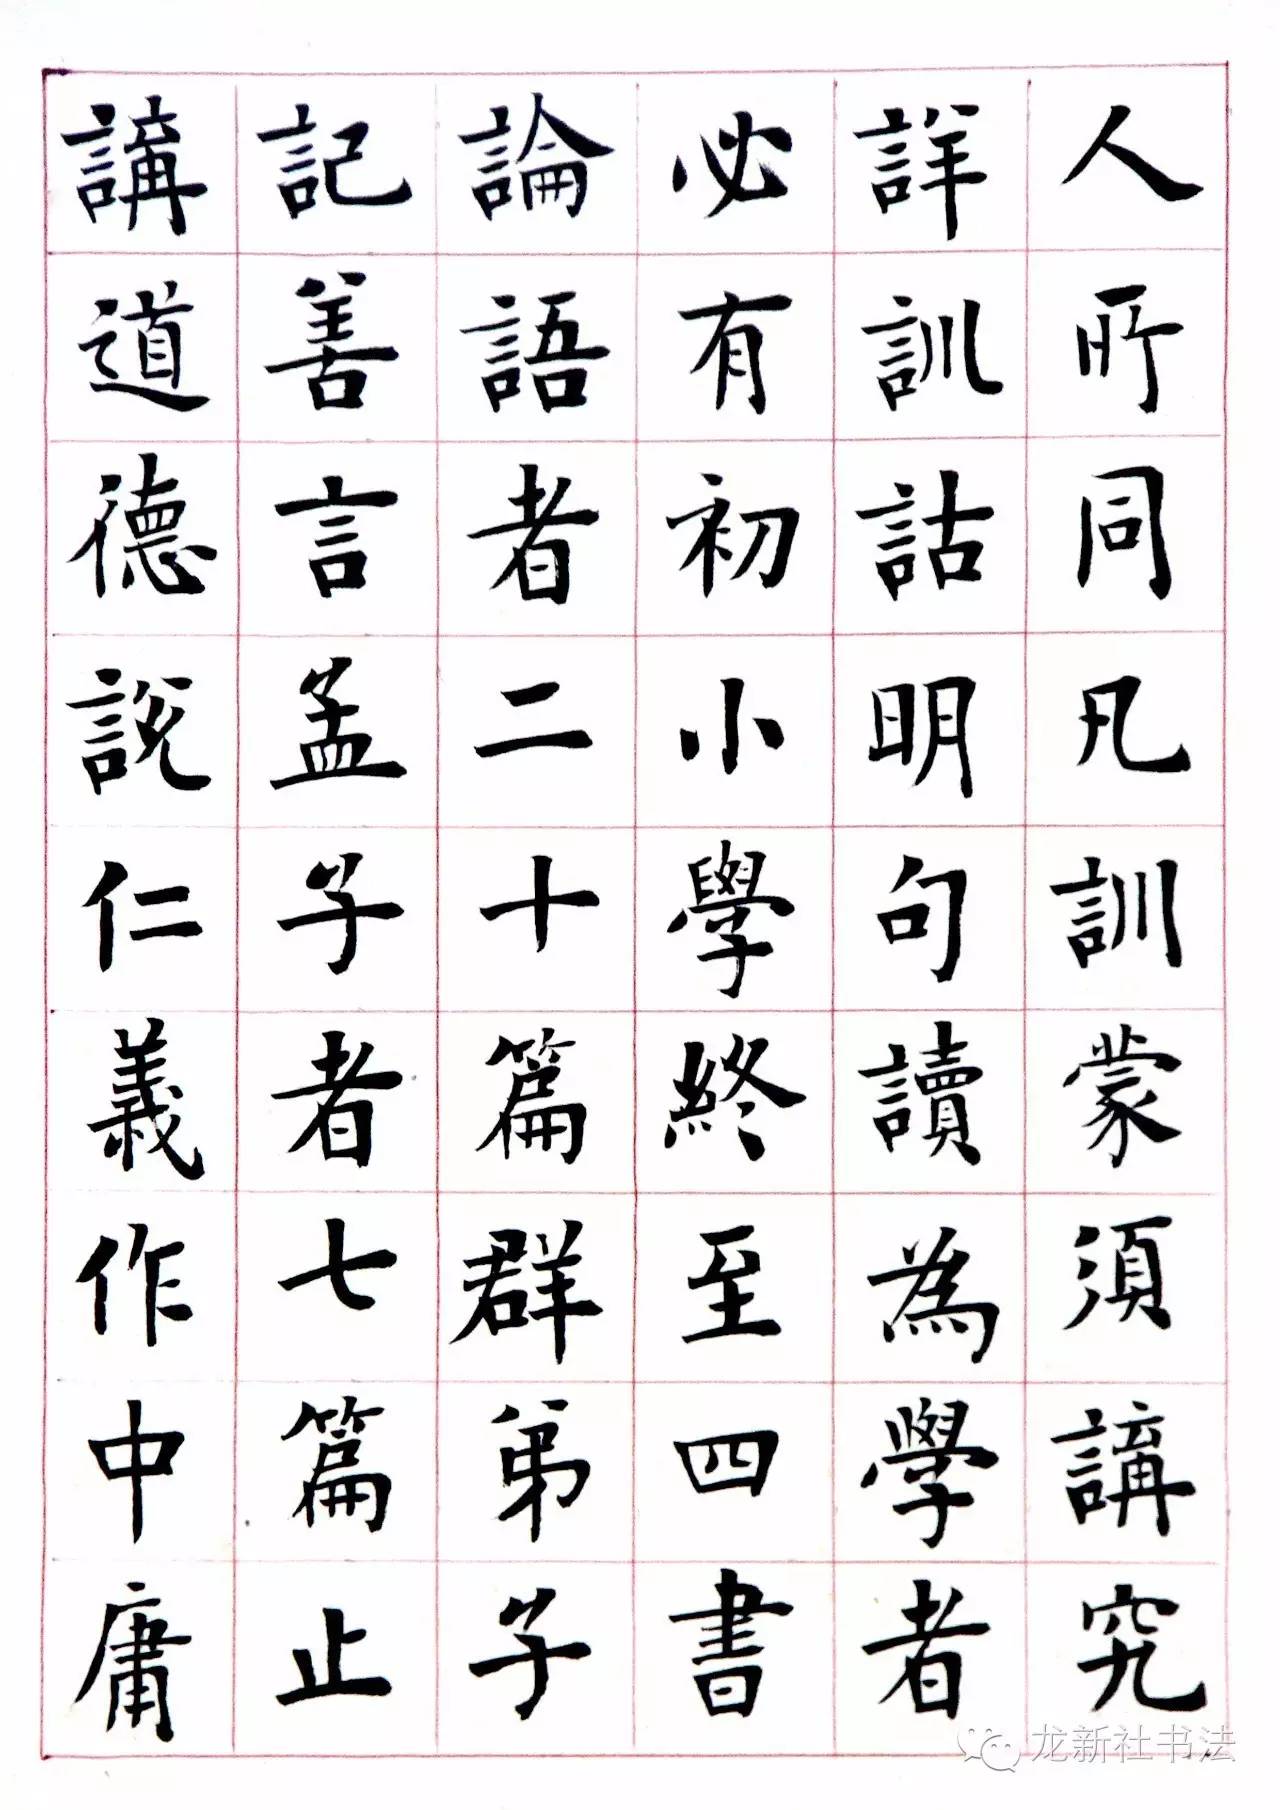 人所同凡訓蒙須講究
詳訓詁明句讀為學者
必有初小學終至四書
論語者二十篇群弟子
記善言孟子者七篇止
講道德説仁義作中庸
龙新社书法